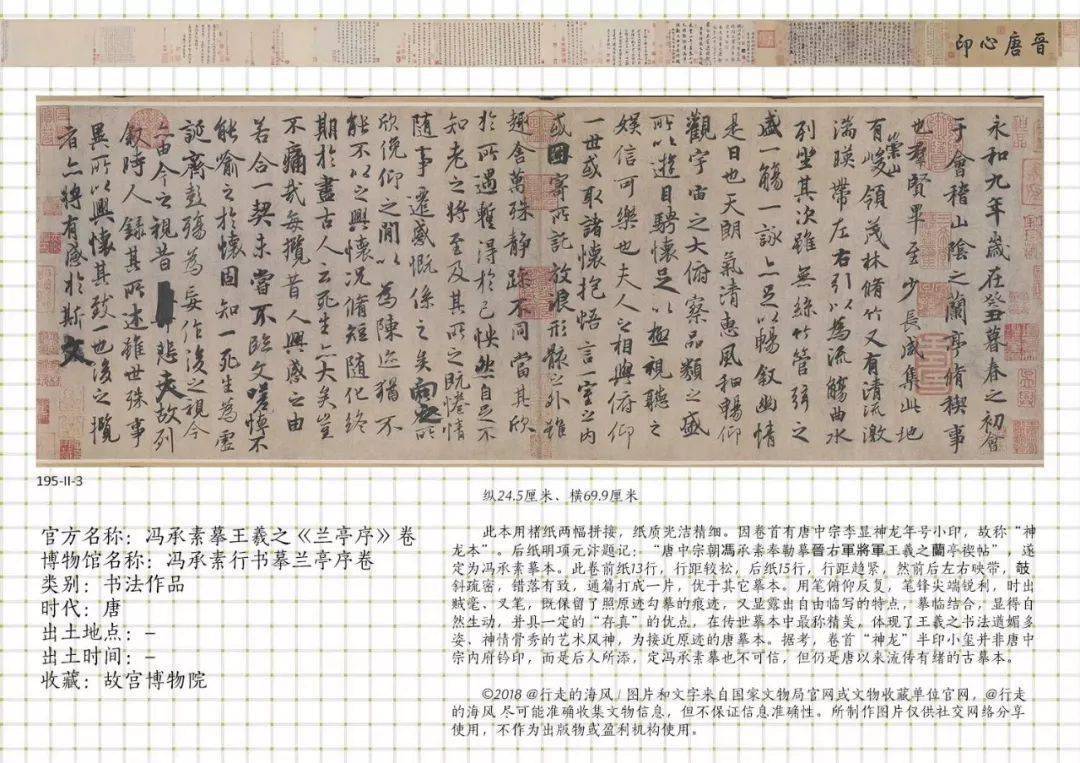 晉唐心印
永和九年歲在癸丑暮春之初會
于會稽山陰之蘭亭脩禊事
也羣賢畢至少長咸集此地
有崇山峻領茂林脩竹又有清流激
湍暎帶左右引以為流觴曲水
列坐其次雖無絲竹管弦之
盛一觴一詠亦足以暢叙幽情
是日也天朗氣清惠風和暢仰
觀宇宙之大俯察品類之盛
所以遊目騁懷足以極視聽之
娛信可樂也夫人之相與俯仰
一世或取諸懷抱悟言一室之內
或因寄所託放浪形骸之外雖
趣舍萬殊靜躁不同當其欣
於所遇暫得於己怏然自足不
知老之將至及其所之既惓情
隨事遷感慨係之矣向之所
欣俛仰之閒以為陳迹猶不
能不以之興懷況脩短隨化終
期於盡古人云死生亦大矣豈
不痛哉每攬昔人興感之由
若合一契未嘗不臨文嗟悼不
能喻之於懷固知一死生為虛
誕齊彭殤為妄作後之視今
亦由今之視昔悲夫故列
叙時人錄其所述雖世殊事
異所以興懷其致一也後之攬
者亦將有感於斯文
195-II-3
纵24.5厘米、横69.9厘米
官方名称：冯承素摹王羲之《兰亭序》卷
博物馆名称：冯承素行书摹兰亭序卷
类别：书法作品
时代：唐
出土地点：-
出土时间：-
收藏：故宫博物院
此本用楮纸两幅拼接，纸质光洁精细。因卷首有唐中宗李显神龙年号小印，故称“神
龙本”。后纸明项元汴题记：“唐中宗朝馮承素奉勒摹晉右軍將軍王羲之蘭亭禊帖”，遂
定为冯承素摹本。此卷前纸13行，行距较松，后纸15行，行距趋紧，然前后左右映带，攲
斜疏密，错落有致，通篇打成一片，优于其它摹本。用笔俯仰反复，笔锋尖端锐利，时出
贼毫、叉笔，既保留了照原迹勾摹的痕迹，又显露出自由临写的特点，摹临结合，显得自
然生动，并具一定的“存真”的优点，在传世摹本中最称精美，体现了王羲之书法遒媚多
姿、神情骨秀的艺术风神，为接近原迹的唐摹本。据考，卷首“神龙”半印小玺并非唐中
宗内府钤印，而是后人所添，定冯承素摹也不可信，但仍是唐以来流传有绪的古摹本。
©2018 @行走的海风 / 图片和文字来自国家文物局官网或文物收藏单位官网，@行走
的海风 尽可能准确收集文物信息，但不保证信息准确性。所制作图片仅供社交网络分享
使用，不作为出版物或盈利机构使用。